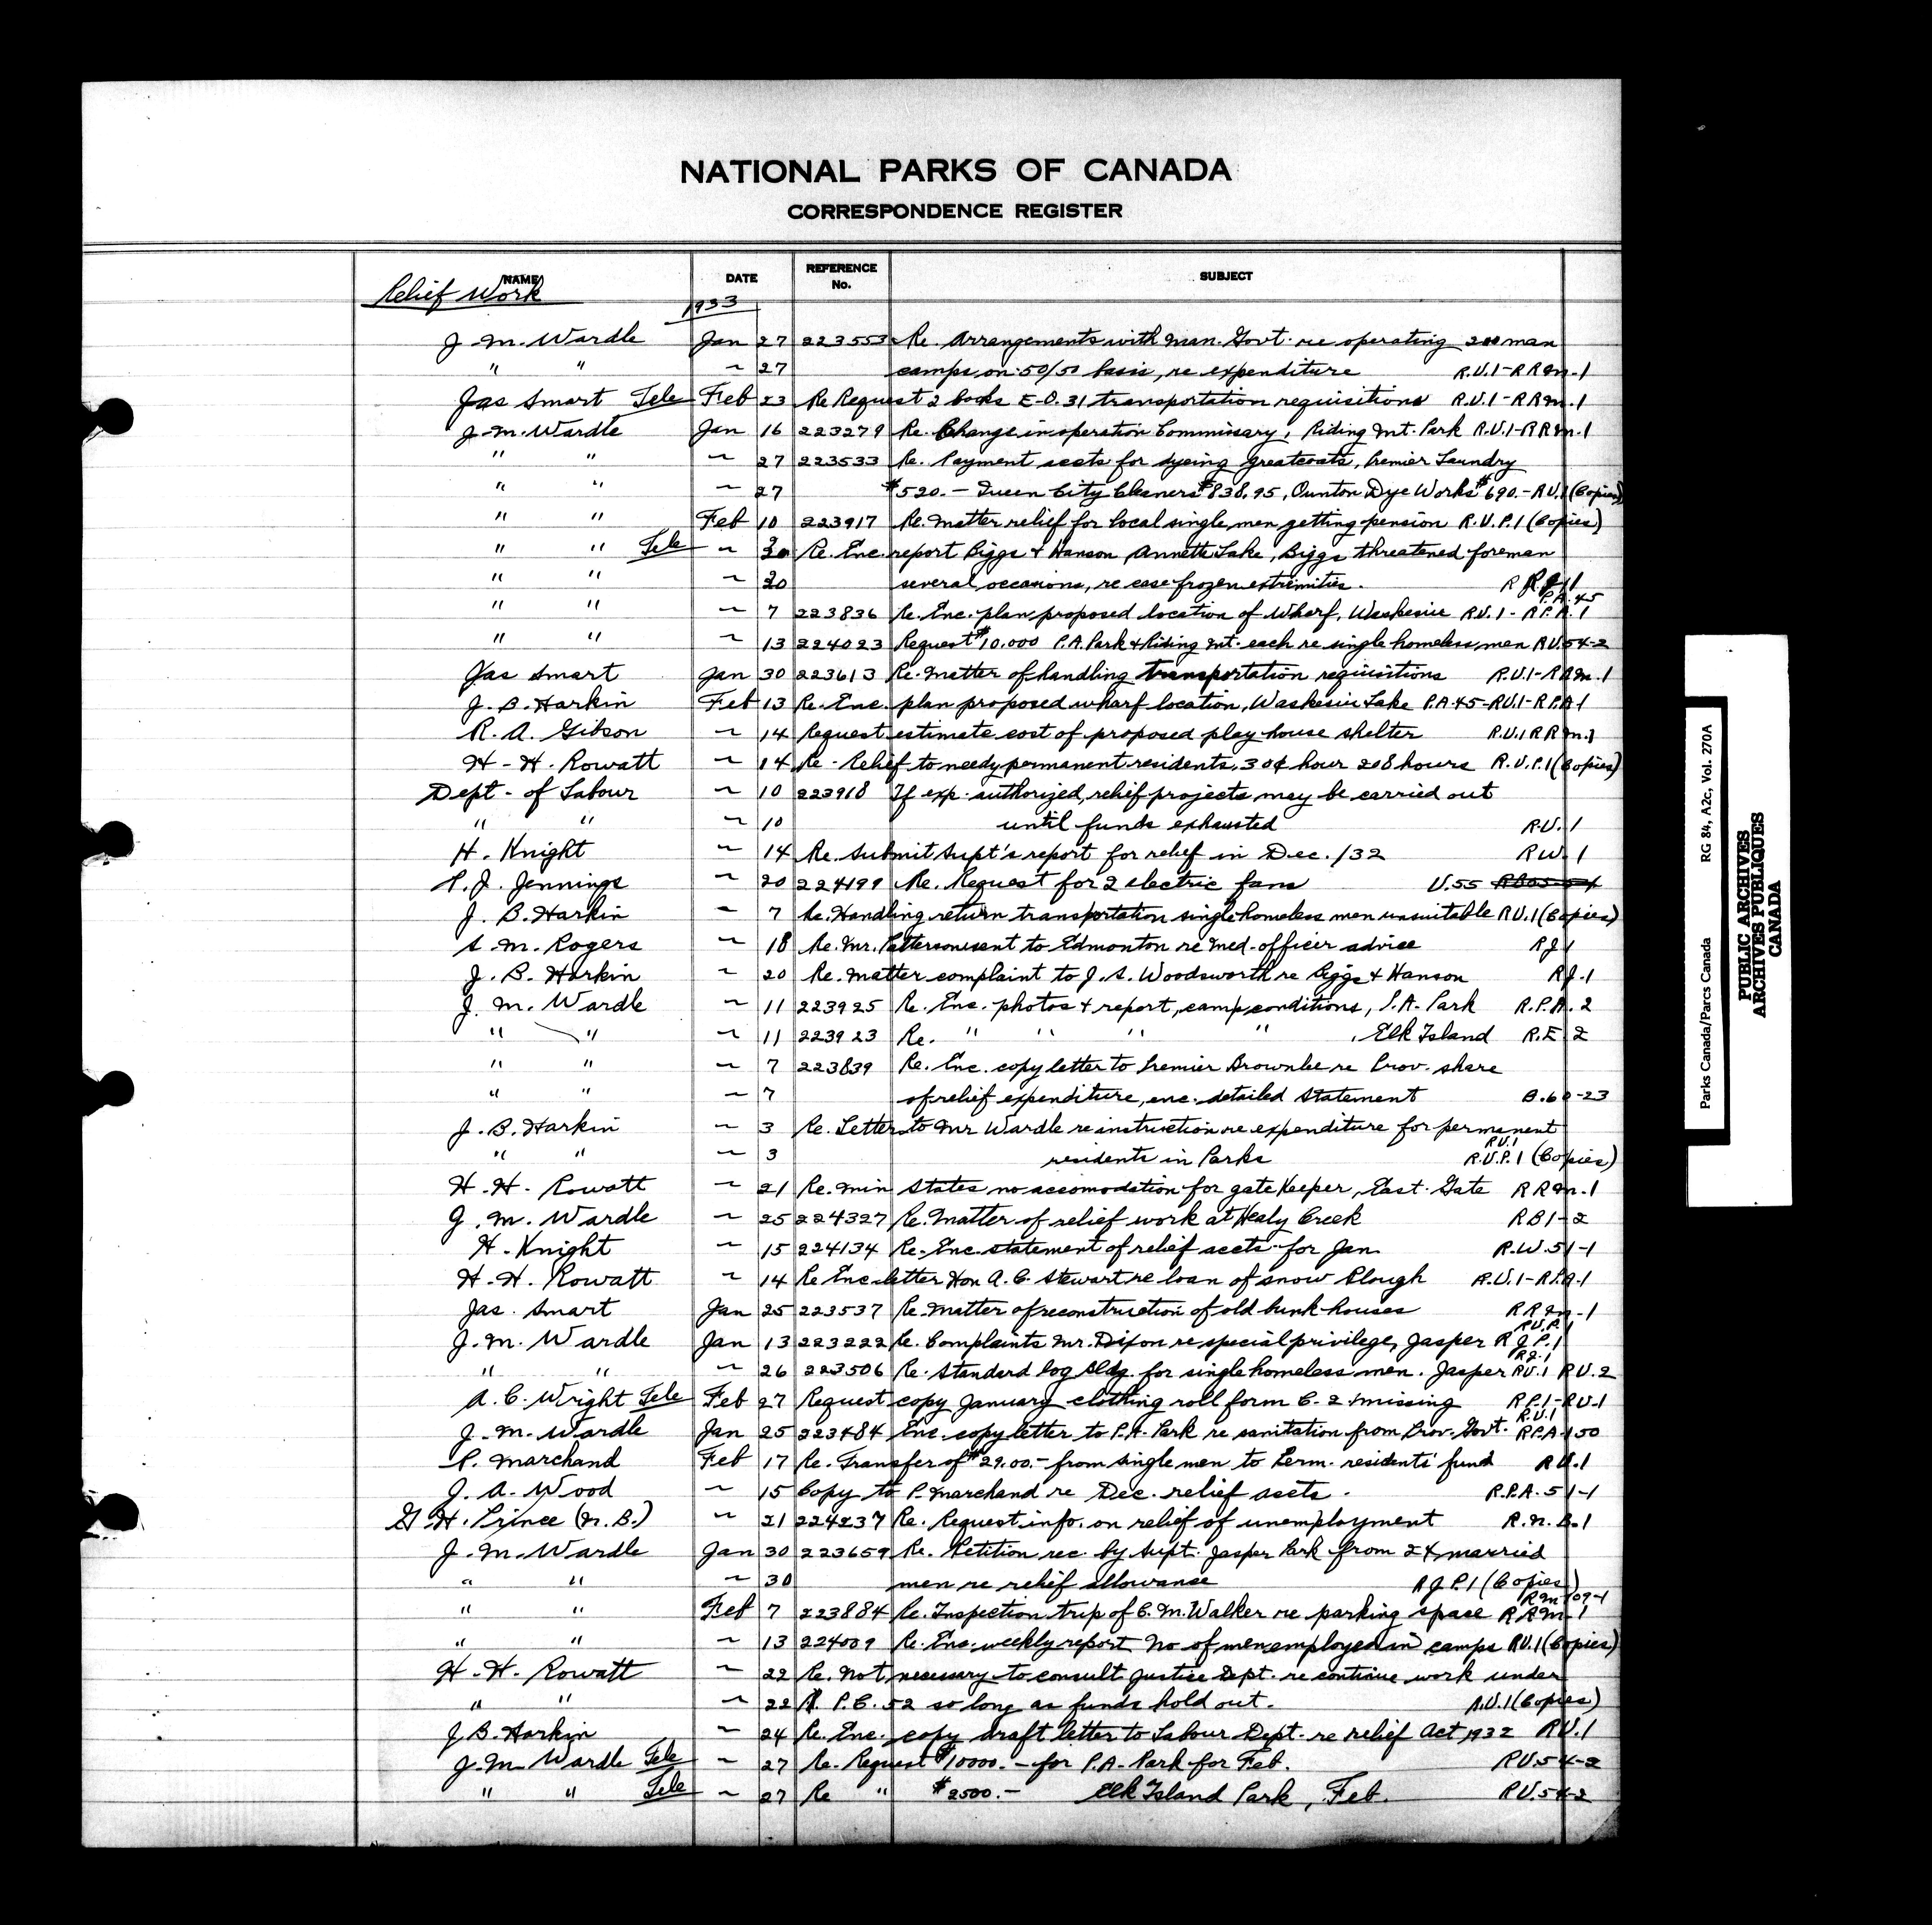 NATIONAL PARKS OF CANADA
CORRESPONDENCE REGISTER
NAME DATE REFERENCE No. SUBJECT
Relief Work
1933
J. M. Wardle Jan 27 223553 Re. Arrangements with Man. Govt. re operating 200 man
" " ~ 27 camps on 50/50 basis, re expenditure R.U.1-RRM.1
Jas Smart Tele Feb 23 Re Request 2 books E-O.31 transportation requisitions R.U.1-RRM.1
J. M. Wardle Jan 16 223279 Re. Change in operation Commissary, Riding Mt. Park R.U.1-RRM.1
" " ~ 27 223533 Re. Payment accts for dyeing greatcoats, Premier Laundry
" " ~ 27 $520.- Queen City Cleaners $838.95, Dye Works $690.- R.U.1 (Copies)
" " Feb 10 223917 Re. Matter relief for local single men getting pension R.U.P.1 (Copies)
" " Tele ~ 20 Re. Enc. report Biggs & Hanson Annette Lake, Biggs threatened foreman
" " ~ 20 several occasions, re case frozen extremities. R J 1
P.A. 45
" " ~ 7 223836 Re. Enc. plan proposed location of Wharf, Waskesiu R.U.1 - R.P.A.1
" " ~ 13 224023 Request $10.000 P.A. Park & Riding Mt. each re single homeless men RU54-2
Jas Smart Jan 30 223613 Re. Matter of handling transportation requisitions R.U.1-RRM.1
J. B. Harkin Feb 13 Re. Enc. plan proposed wharf location, Waskesiu Lake P.A.45-RU.1-RPA1
R. A. Gibson ~ 14 Request estimate cost of proposed play house shelter R.U.1 RRM.1
H. H. Rowatt ~ 14 Re. Relief to needy permanent residents, 30¢ hour 208 hours R.U.P.1 (Copies)
Dept. of Labour ~ 10 223918 If exp. authorized, relief projects may be carried out
" " ~ 10 until funds exhausted R.U.1
H. Knight ~ 14 Re. Submit Supt's report for relief in Dec. /32 RW.1
P. J. Jennings ~ 20 224199 Re. Request for 2 electric fans U.55
J. B. Harkin ~ 7 Re. Handling return transportation single homeless men unsuitable RU.1 (Copies)
S. M. Rogers ~ 18 Re. Mr. Patterson sent to Edmonton re Med. officer advice RJ1
J. B. Harkin ~ 20 Re. Matter complaint to J. S. Woodsworth re Biggs & Hanson RJ.1
J. M. Wardle ~ 11 223925 Re. Enc. photos & report, camp conditions, P.A. Park R.P.A.2
" " ~ 11 223923 Re. " " " " , Elk Island R.E 2
" " ~ 7 223839 Re. Enc. copy letter to Premier Brownlee re Prov. share
" " ~ 7 of relief expenditure, enc. detailed statement B.60-23
J. B. Harkin ~ 3 Re. Letter to Mr Wardle re instruction re expenditure for permanent
R.U.1
" " ~ 3 residents in Parks R.U.P.1 (Copies)
H. H. Rowatt ~ 21 Re. Min States no accomodation for gate Keeper, East Gate RRM.1
J. M. Wardle ~ 25 224327 Re. Matter of relief work at Healy Creek RB1-2
H. Knight ~ 15 224134 Re. Enc. statement of relief accts for Jan. R.W.51-1
H. H. Rowatt ~ 14 Re Enc. letter Hon A. C. Stewart re loan of snow Plough R.U.1-RPA-1
Jas. Smart Jan 25 223537 Re. Matter of reconstruction of old bunk houses RRM-1
R.U.P.1
J. M. Wardle Jan 13 223222 Re. Complaints Mr. Dixon re special privilege, Jasper RJP.1
RJ.1
" " ~ 26 223506 Re. Standard log bldg. for single homeless men. Jasper RU.1 RU.2
A. C. Wright Tele Feb 27 Request copy January clothing roll form C. 2 missing RP1-RU.1
R.U.1
J. M. Wardle Jan 25 223484 Enc. copy letter to P.A. Park re sanitation from Prov. Govt. RPA-150
P. Marchand Feb 17 Re. Transfer of $29.00.- from single men to Perm. residents' fund RU.1
J. A. Wood ~ 15 Copy to P. Marchand re Dec. relief accts. R.P.A.51-1
G H. Prince (N.B.) ~ 21 224237 Re. Request info. on relief of unemployment R.N.B.1
J. M. Wardle Jan 30 223659 Re. Petition rec. by Supt. Jasper Park from 24 married
" " ~ 30 men re relief allowance RJP.1 (Copies)
RM 109-1
" " Feb 7 223884 Re. Inspection trip of C. M. Walker re parking space RRM-1
" " ~ 13 224009 Re. Enc. weekly report No of men employed in camps RU.1 (Copies)
H. H. Rowatt ~ 22 Re. Not necessary to consult Justice Dept. re continue work under
" " ~ 22 P.C. 52 so long as funds hold out. R.U.1 (Copies)
J B. Harkin ~ 24 Re. Enc. copy draft letter to Labour Dept. re relief Act 1932 RU.1
J. M. Wardle Tele ~ 27 Re. Request $10000.- for P.A. Park for Feb. RU.54-2
" " Tele ~ 27 Re " $2500.- Elk Island Park, Feb. RU.54-2
Parks Canada/Parcs Canada RG 84, A2c, Vol. 270A
PUBLIC ARCHIVES
ARCHIVES PUBLIQUES
CANADA